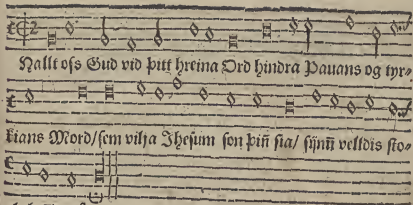 Hallt oss Gud vid þitt hreina Ord hindra Pavans og tyr-
kians Mord/sem vilja Jhesum son þiñ sia/ sijnū velldis sto-